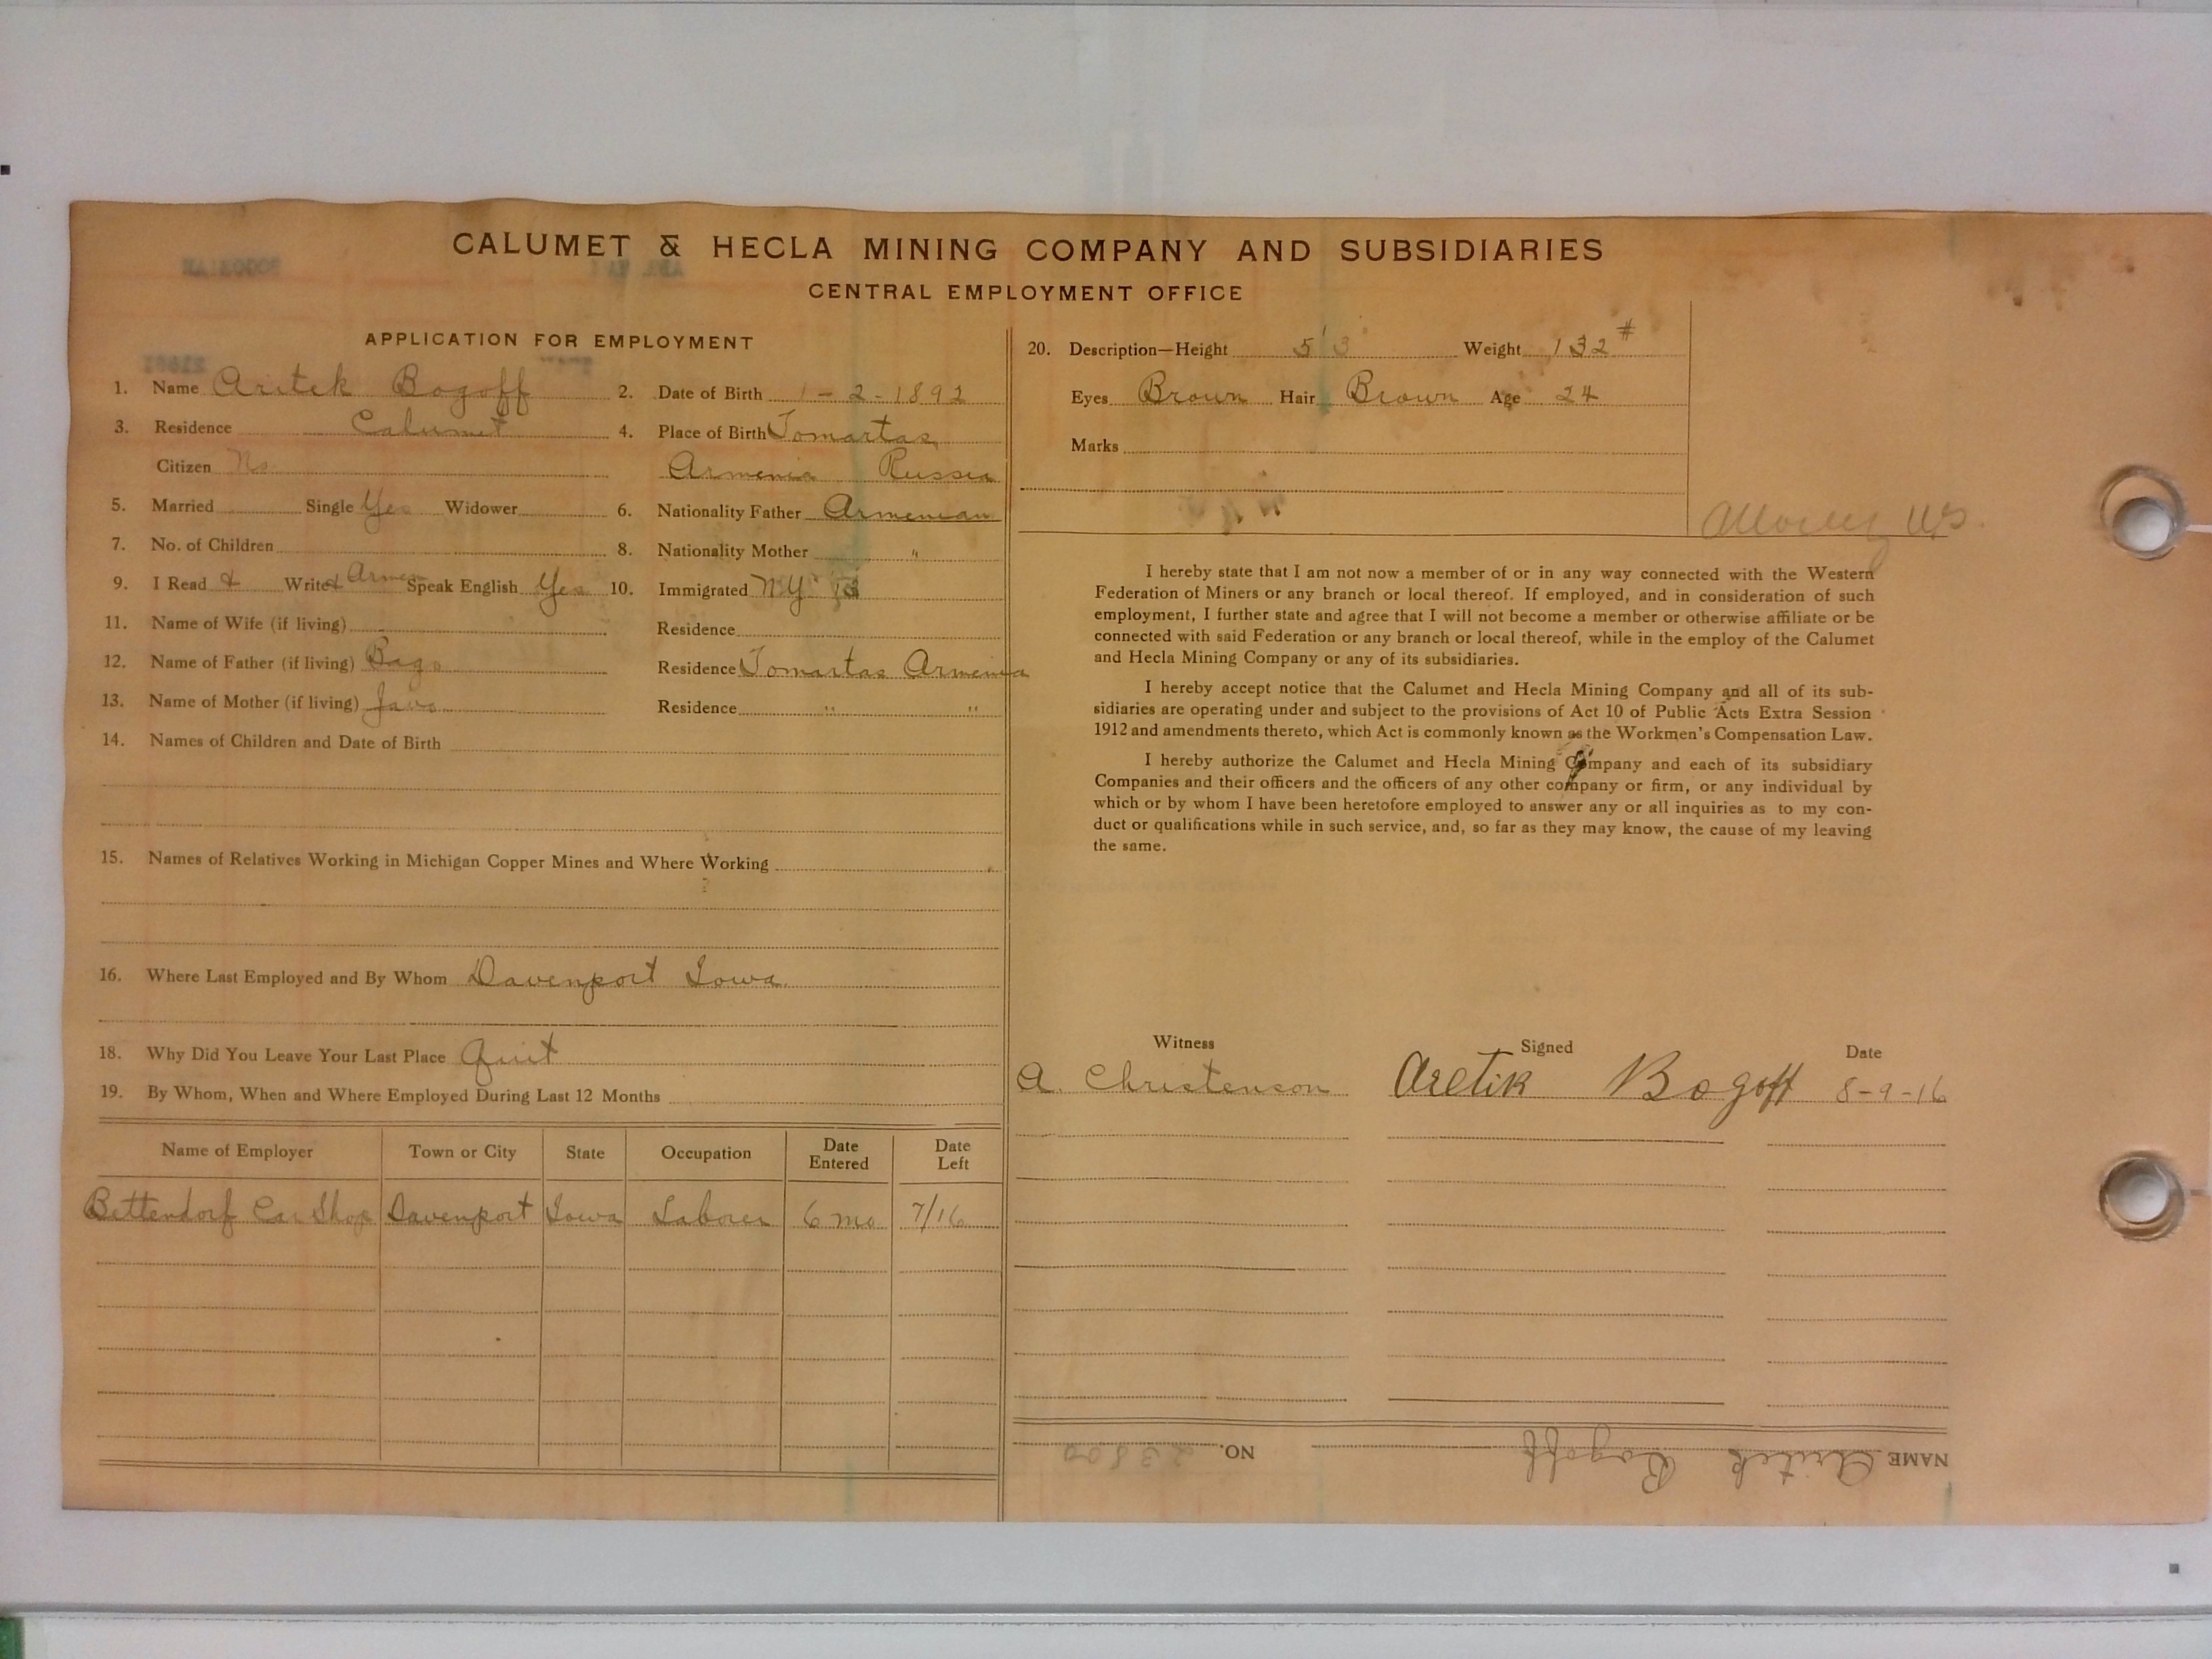 CALUMET & HECLA MINING COMPANY AND SUBSIDIARIES
CENTRAL EMPLOYMENT OFFICE
APPLICATION FOR EMPLOYMENT
1. Name Aritek Bogoff 2. Date of Birth 1-2-1892
3. Residence Calumet 4. Place of Birth Tomartas
Citizen No Armenia Russia
5. Married Single Yes Widower 6. Nationality Father Armenian
7. No. of Children 8. Nationality Mother "
9. I Read & Write & Armen Speak English Yes 10. Immigrated NY
11. Name of Wife (if living) Residence
12. Name of Father (if living) Bago Residence Tomartas Armenia
13. Name of Mother (if living) Residence " "
14. Names of Children and Date of Birth
15. Names of Relatives Working in Michigan Copper Mines and Where Working
16. Where Last Employed and By Whom Davenport Iowa.
18. Why Did You Leave Your Last Place Quit
19. By Whom, When and Where Employed During Last 12 Months
Name of Employer Town or City State Occupation Date Entered Date Left
Bettendorf Car Shop Davenport Iowa Laborer 6 mo 7/16
20. Description—Height 5'3 Weight 132#
Eyes Brown Hair Brown Age 24
Marks
I hereby state that I am not now a member of or in any way connected with the Western
Federation of Miners or any branch or local thereof. If employed, and in consideration of such
employment, I further state and agree that I will not become a member or otherwise affiliate or be
connected with said Federation or any branch or local thereof, while in the employ of the Calumet
and Hecla Mining Company or any of its subsidiaries.
I hereby accept notice that the Calumet and Hecla Mining Company and all of its sub-
sidiaries are operating under and subject to the provisions of Act 10 of Public Acts Extra Session
1912 and amendments thereto, which Act is commonly known as the Workmen's Compensation Law.
I hereby authorize the Calumet and Hecla Mining Company and each of its subsidiary
Companies and their officers and the officers of any other company or firm, or any individual by
which or by whom I have been heretofore employed to answer any or all inquiries as to my con-
duct or qualifications while in such service, and, so far as they may know, the cause of my leaving
the same.
Witness Signed Date
A. Christenson Aretik Bogoff 8-9-16
NAME Aritek Bogoff NO.